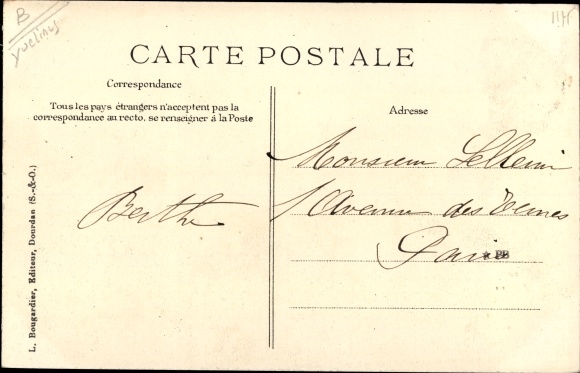 B
Yvelines
CARTE POSTALE
Correspondance
Tous les pays étrangers n'acceptent pas la
correspondance au recto, se renseigner à la Poste
Adresse
Monsieur
Berthe
1 Avenue des Ternes
Paris
BB
L. Bougardier, Editeur, Dourdan (S.-&-O.)